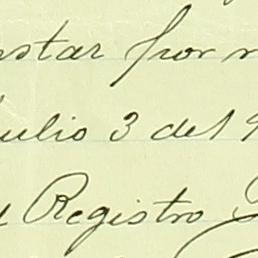 star por
Julio 3 del
Registro